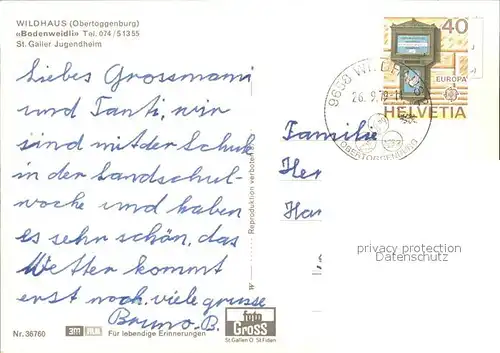 WILDHAUS (Obertoggenburg)
«Bodenweidli» Tel. 074/51355
St. Galler Jugendheim
Liebes Grossmami
und Tanti, wir
sind mit der Schule
in der Landschul-
woche und haben
es sehr schön, das
Wetter kommt
erst noch. viele grüsse
Bruno. B.
Nr. 36760
3M
Für lebendige Erinnerungen
foto
GROSS
St. Gallen O St. Fiden
Reproduktion verboten
40
EUROPA
HELVETIA
9658 WILDHAUS
26.9.79
OBERTOGGENBURG
Familie
Her
Han
privacy protection
Datenschutz